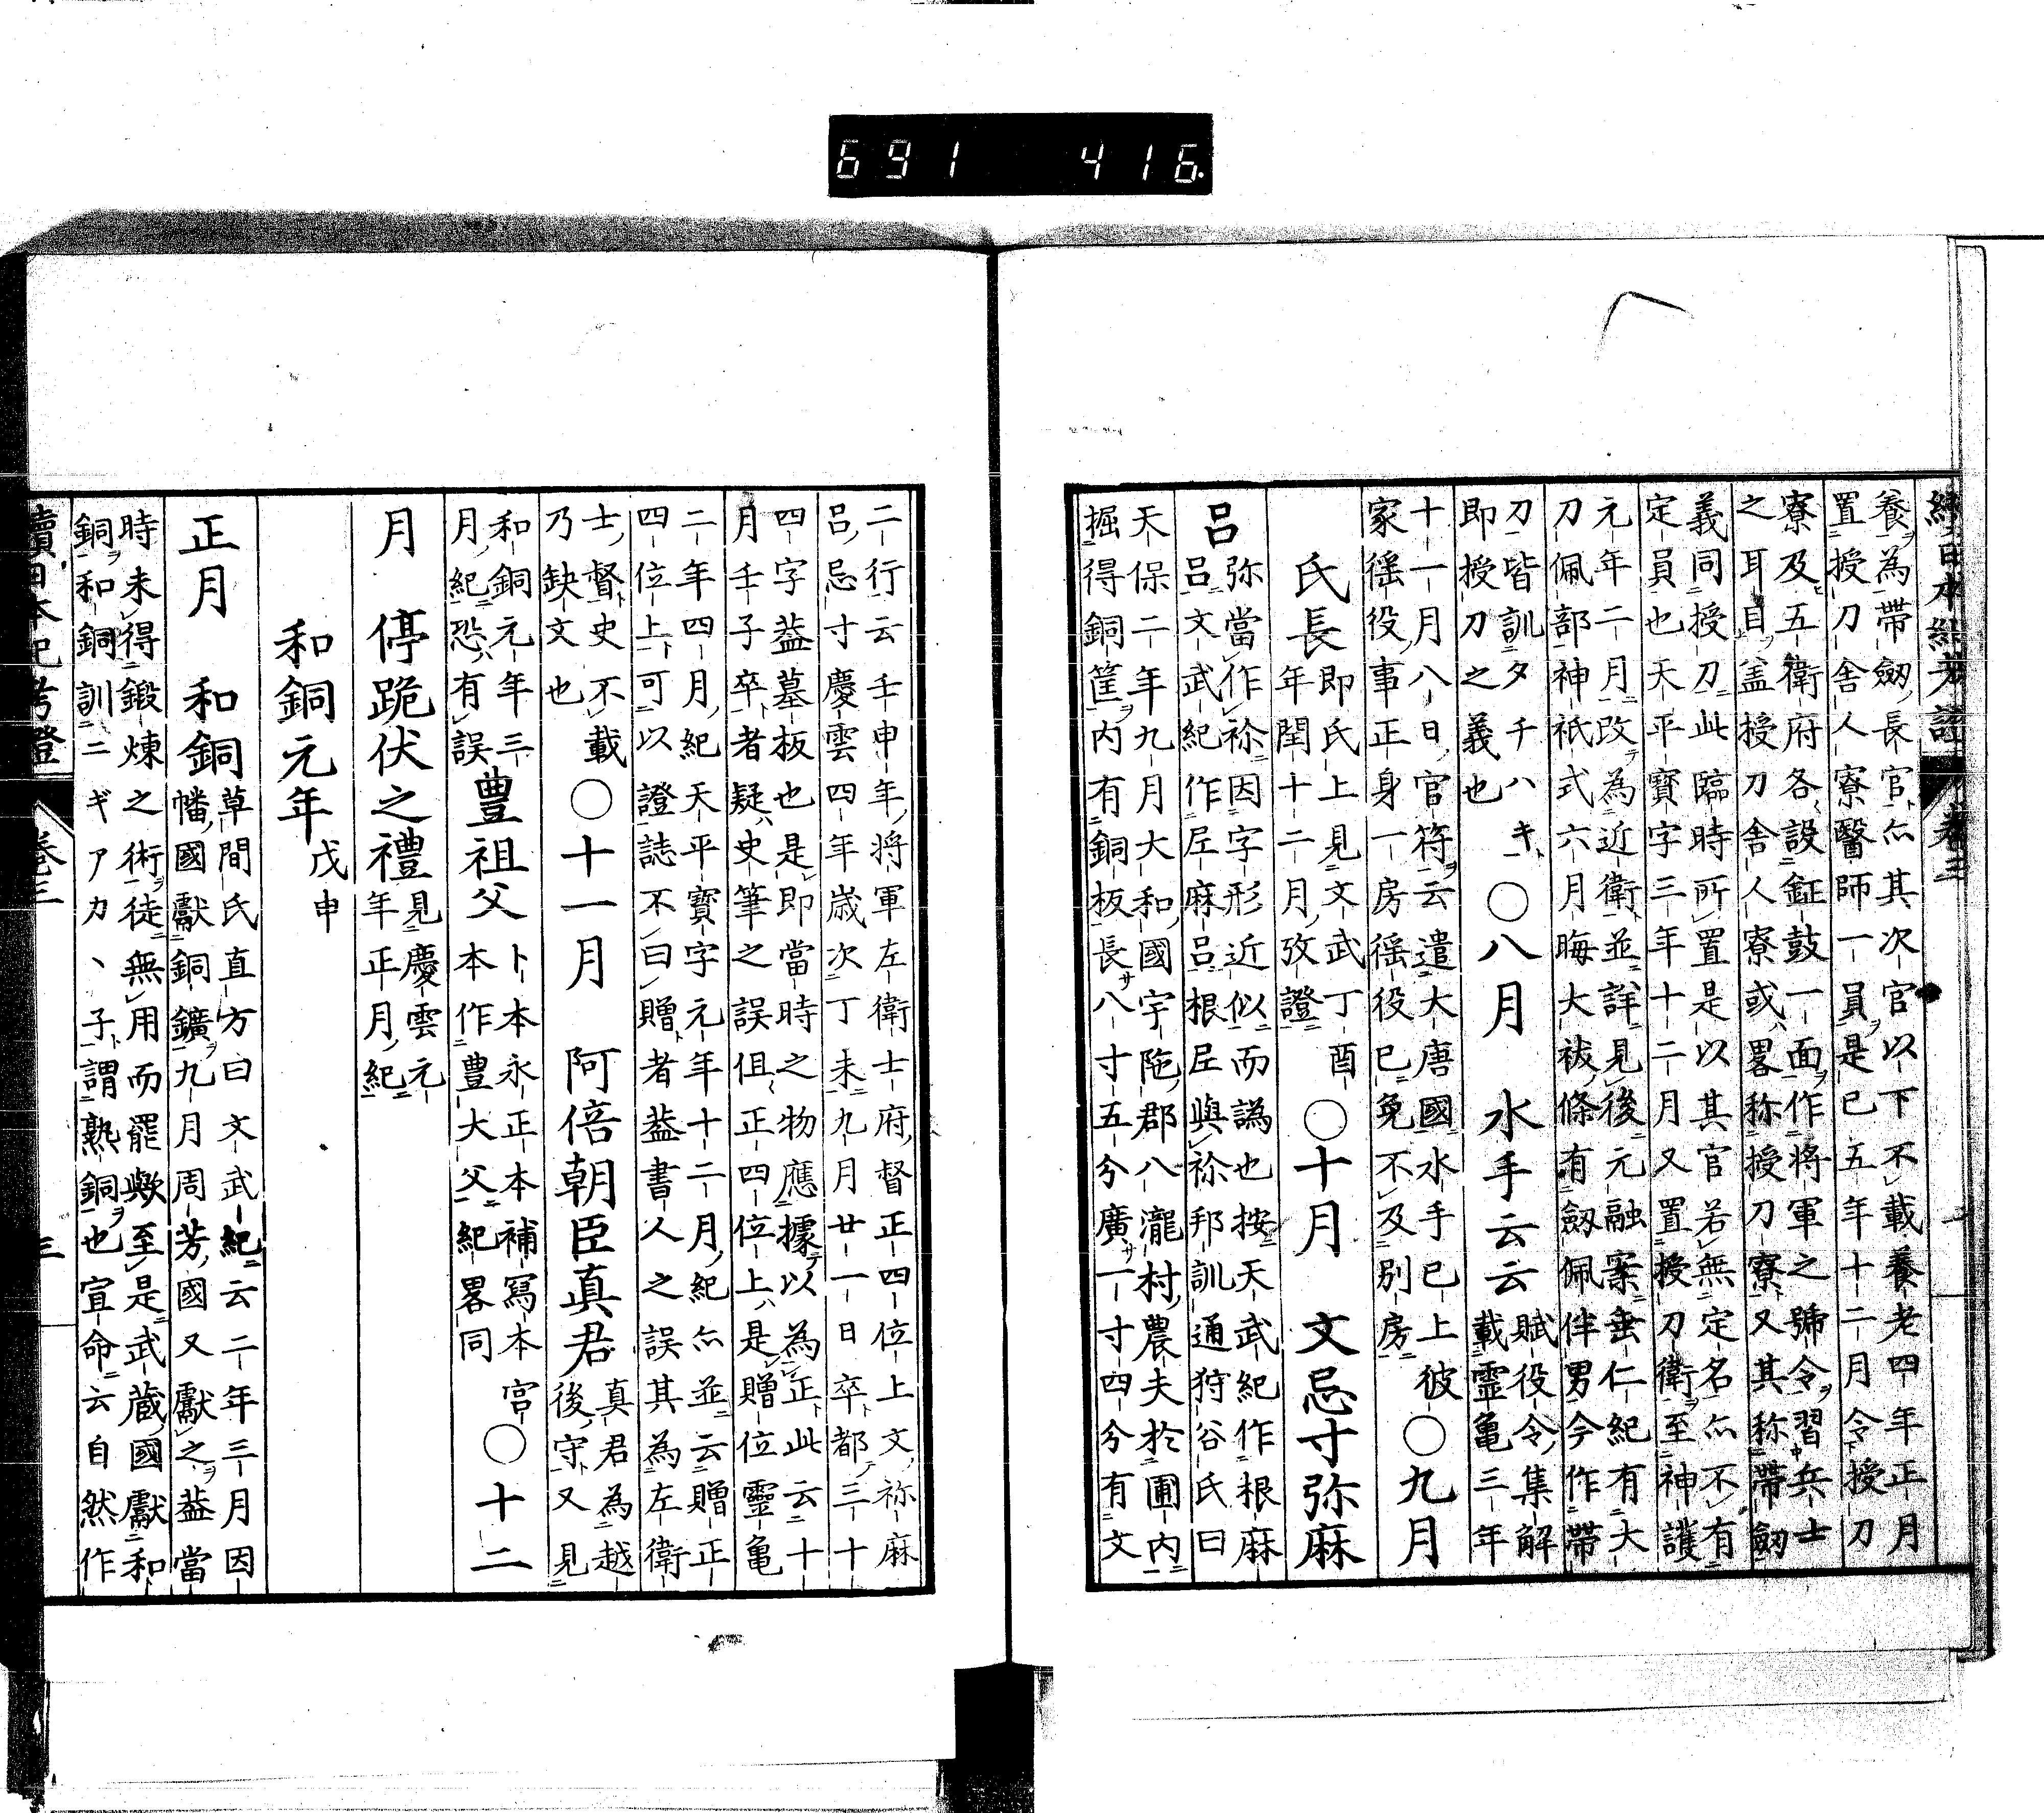 691 416
續日本紀考證 卷三
養為帶劔長官亦其次官以下不載養老四年正月
置授刀舍人寮醫師一員是已五年十二月令授刀
寮及五衛府各設鉦鼓一面作將軍之號令習兵士
之耳目盖授刀舍人寮或畧称授刀寮又其称帶劔
義同授刀此臨時所置是以其官若無定名亦不有
定員也天平寶字三年十二月又置授刀衛至神護
元年二月改為近衛並詳見後元融案垂仁紀有大
刀佩部神祇式六月晦大祓條有劔佩伴男今作帶
刀皆訓タチハキ
即授刀之義也
○八月 水手云云
賦役令集解
載靈亀三年
十一月八日官符云遣大唐國水手已上彼
家徭役事正身一房徭役已免不及別房
○九月
氏長
即氏上見文武丁酉
年閏十二月攷證
○十月 文忌寸弥麻
呂
弥當作祢因字形近似而譌也按天武紀作根麻
呂文武紀作尼麻呂根尼與祢邦訓通狩谷氏曰
天保二年九月大和國宇陁郡八瀧村農夫於圃内
掘得銅筐内有銅板長八寸五分廣一寸四分有文
二行云壬申年將軍左衛士府督正四位上文祢麻
呂忌寸慶雲四年歲次丁未九月廿一日卒都三十
四字葢墓板也是即當時之物應據以為正此云十
月壬子卒者疑史筆之誤但正四位上是贈位靈亀
二年四月紀天平寶字元年十二月紀亦並云贈正
四位上可以證誌不曰贈者葢書人之誤其為左衛
士督史不載
乃缺文也
○十一月 阿倍朝臣真君
真君為越
後守又見
和銅元年三
月紀恐有誤
豊祖父
卜本永正本補寫本宮
本作豊大父紀畧同
○十二
月 停跪伏之禮
見慶雲元
年正月紀
和銅元年戊申
正月 和銅
草間氏直方曰文武紀云二年三月因
幡國獻銅鑛九月周芳國又獻之葢當
時未得鍛煉之術徒無用而罷歟至是武蔵國獻和
銅和銅訓ニギアカヽ子謂熟銅也宣命云自然作
續日本紀考證 卷三 三